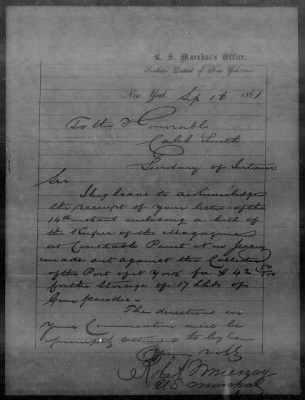 U. S. Marshal's Office,
Southern District of New York
New York Sep 16 1861
To the Honorable
Caleb Smith
Secretary of Interior
Sir
I beg leave to acknowledge
the receipt of your letter of the
14th instant inclosing a bill of
the Keeper of the Magazine
at Constable Point New Jersey
made out against the Collector
of the Port of New York for $42
for the storage of 17 bbls of
Gun powder.
The directions in
your Communication will be
promptly attended to by
Robert Murray
U S Marshal